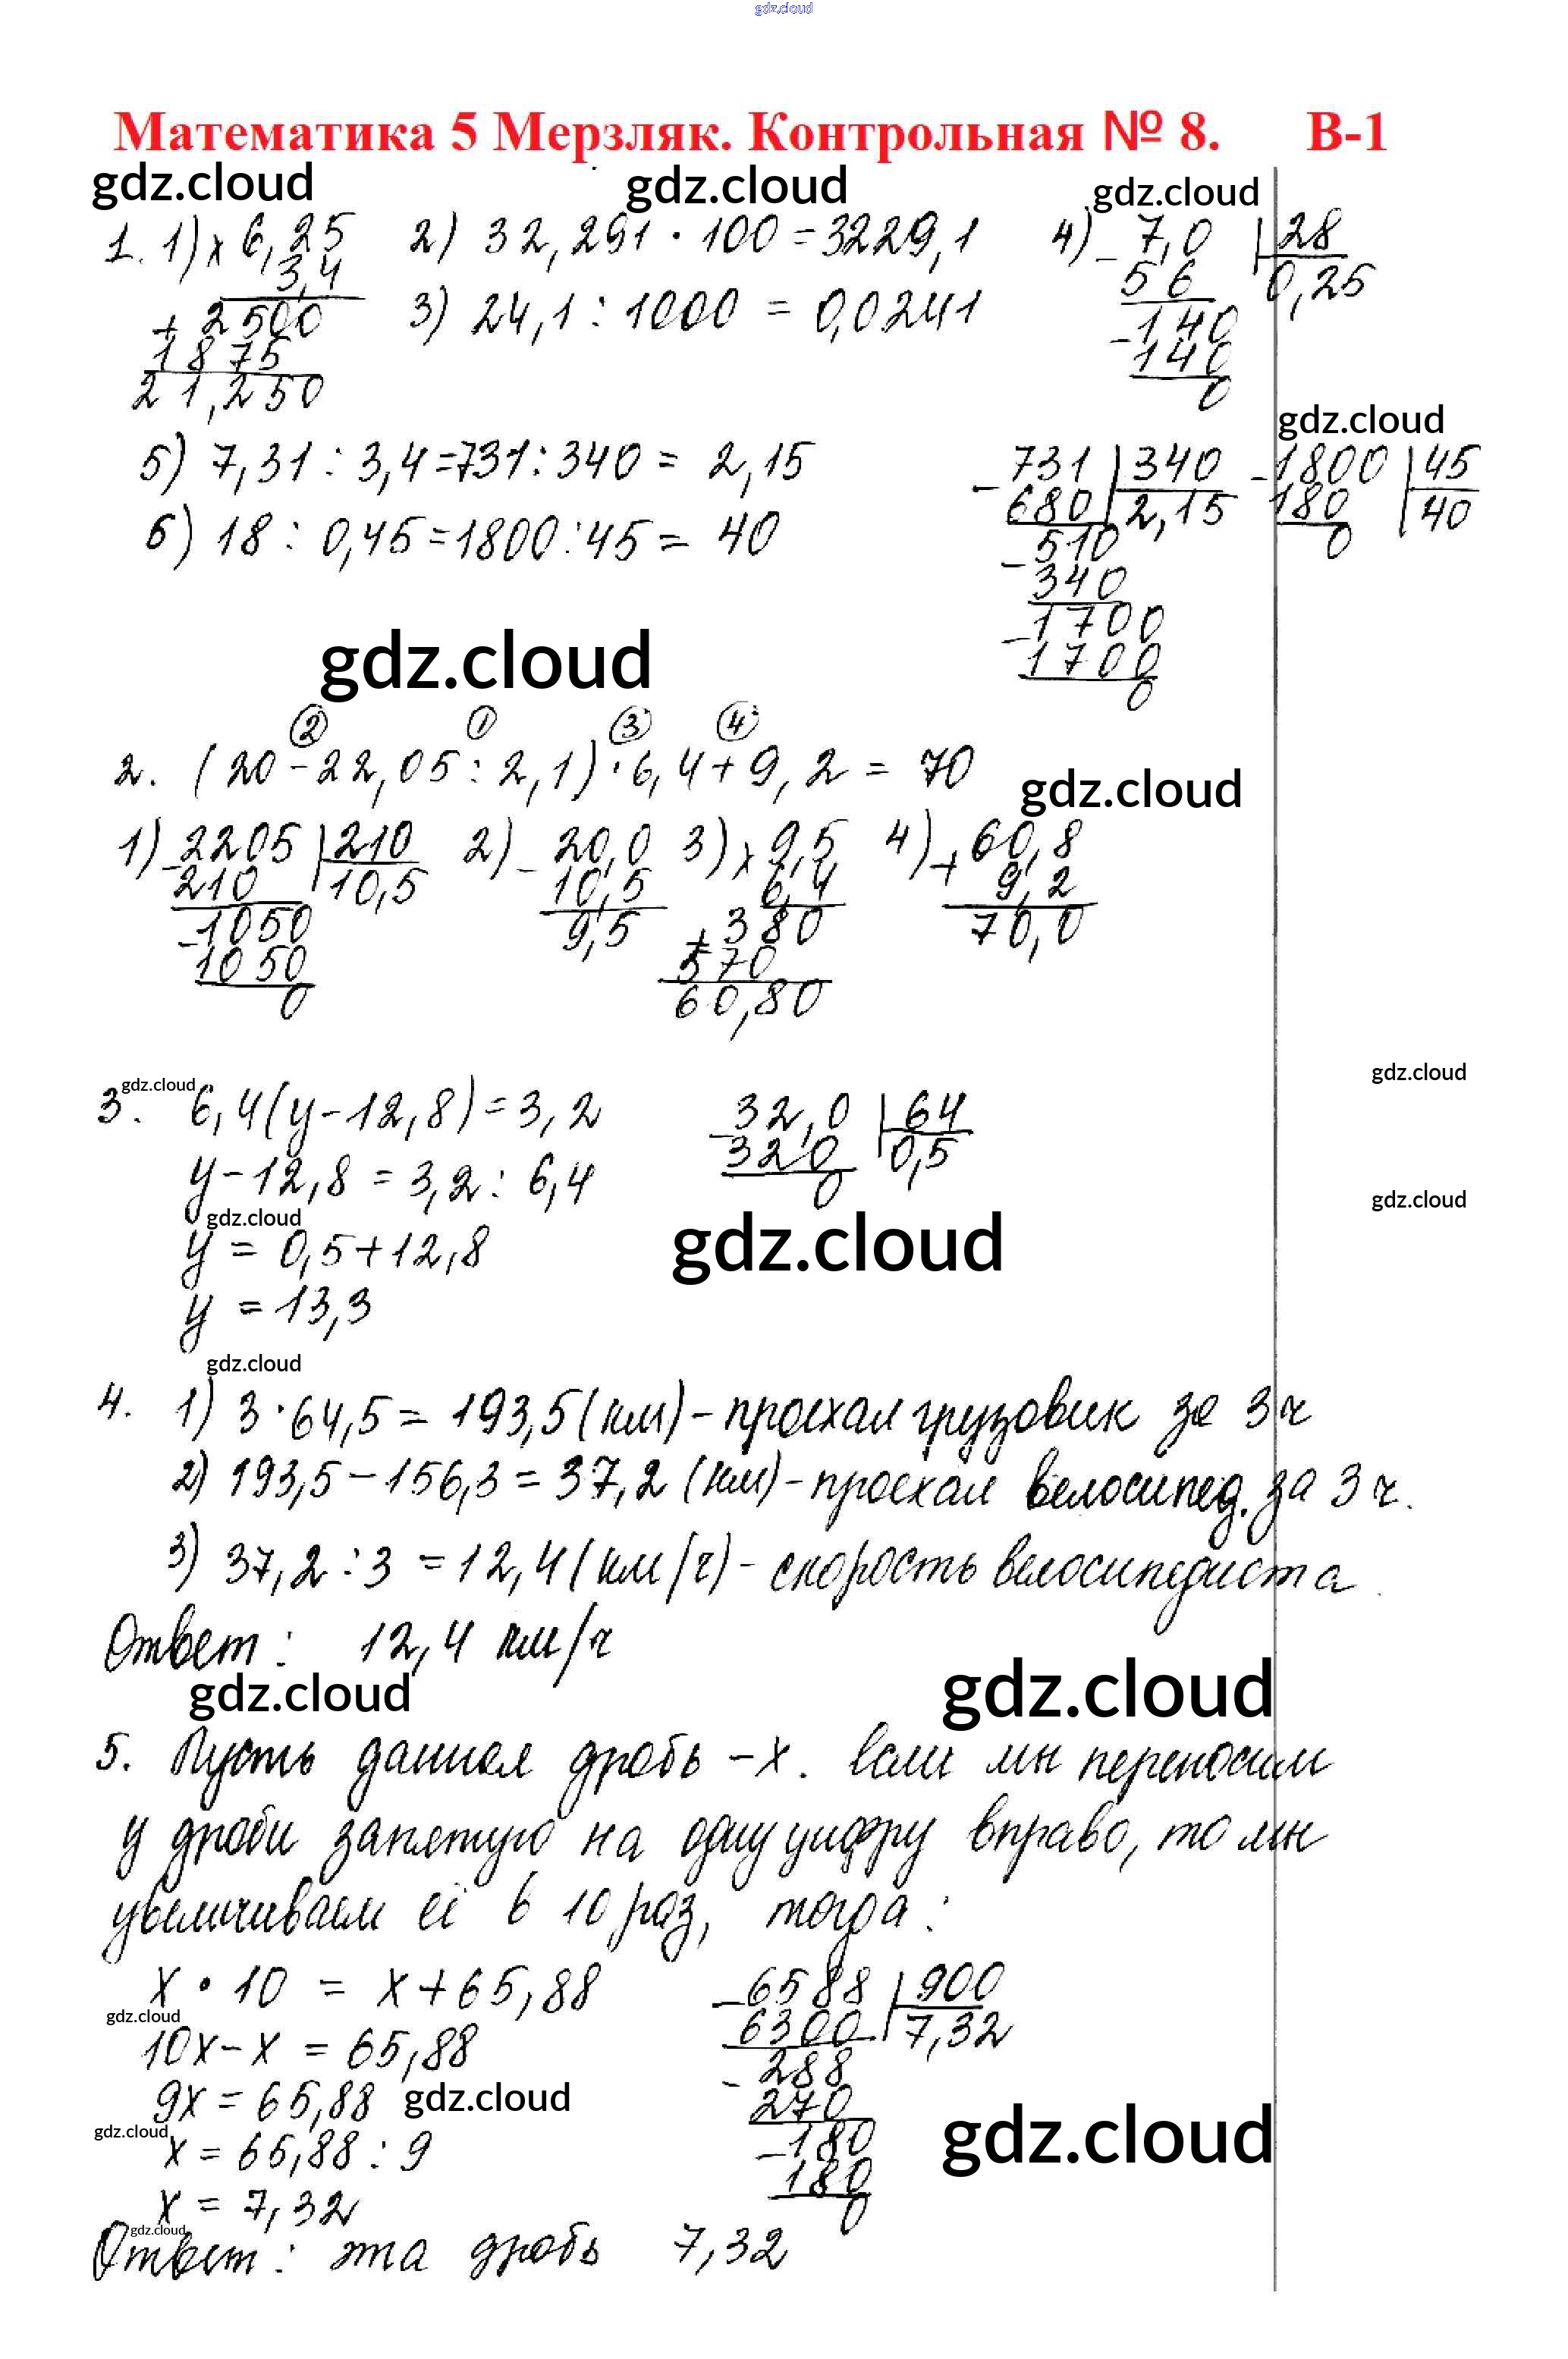 gdz.cloud
Математика 5 Мерзляк. Контрольная № 8. В-1
gdz.cloud gdz.cloud gdz.cloud
1. 1) × 6,25
3,4
+ 2500
1875
21,250
2) 32,291 · 100 = 3229,1
3) 24,1 : 1000 = 0,0241
4) - 7,0 28
56 0,25
- 140
140
0
gdz.cloud
5) 7,31 : 3,4 = 731 : 340 = 2,15
6) 18 : 0,45 = 1800 : 45 = 40
- 731 340
680 2,15
- 510
340
- 1700
1700
0
- 1800 45
180 40
0
gdz.cloud
② ① ③ ④
2. (20 - 22,05 : 2,1) · 6,4 + 9,2 = 70
gdz.cloud
1) - 2205 210
210 10,5
- 1050
1050
0
2) - 20,0
10,5
9,5
3) × 9,5
6,4
+ 380
570
60,80
4) + 60,8
9,2
70,0
gdz.cloud gdz.cloud
3. 6,4(y - 12,8) = 3,2
y - 12,8 = 3,2 : 6,4
gdz.cloud
y = 0,5 + 12,8
y = 13,3
- 32,0 64
320 0,5
0
gdz.cloud
gdz.cloud
gdz.cloud
4. 1) 3 · 64,5 = 193,5 (км) - проехал грузовик за 3 ч
2) 193,5 - 156,3 = 37,2 (км) - проехал велосипед. за 3 ч.
3) 37,2 : 3 = 12,4 (км/ч) - скорость велосипедиста.
Ответ: 12,4 км/ч
gdz.cloud gdz.cloud
5. Пусть данная дробь - x. Если мы переносим
у дроби запятую на одну цифру вправо, то мы
увеличиваем её в 10 раз, тогда:
x · 10 = x + 65,88
gdz.cloud
10x - x = 65,88
9x = 65,88 gdz.cloud
gdz.cloud
x = 65,88 : 9
x = 7,32
- 6588 900
6300 7,32
- 288
270
- 180
180
0
gdz.cloud
gdz.cloud
Ответ: эта дробь 7,32